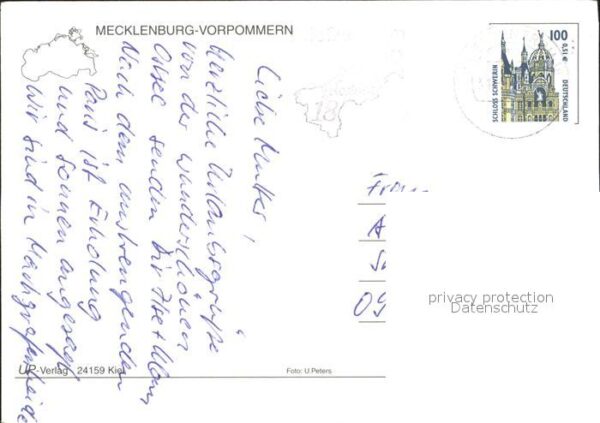 MECKLENBURG-VORPOMMERN
Liebe Mutter!
Herzliche Urlaubsgrüße
von der wunderschönen
Ostsee senden Dir
Nach dem anstrengenden
Paris ist Erholung
und Sonnen angesagt
Wir sind in Markgrafenheide
UP-Verlag 24159 Kiel
Foto: U.Peters
100
0,51€
SCHLOSS SCHWERIN
DEUTSCHLAND
18
Frau
A
09
privacy protection
Datenschutz